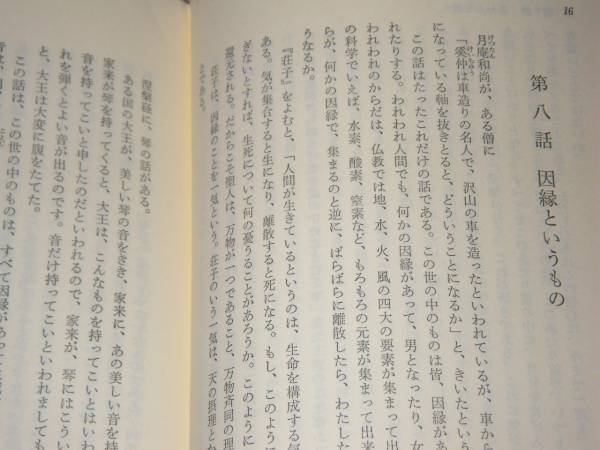 16
第八話 因縁というもの
月庵和尚が、ある僧に
げったん
「奚仲は車造りの名人で、沢山の車を造ったといわれているが、車から
けいちゅう
になっている軸を抜きとると、どういうことになるか」と、きいたという
この話はたったこれだけの話である。この世の中のものは皆、因縁があ
れたりする。われわれ人間でも、何かの因縁があって、男となったり、女
われわれのからだは、仏教では地、水、火、風の四大の要素が集まって出
の科学でいえば、水素、酸素、窒素など、もろもろの元素が集まって出来
らが、何かの因縁で、集まるのと逆に、ばらばらに離散したら、わたした
うなるか。
『荘子』をよむと、「人間が生きているというのは、生命を構成する気
ある。気が集合すると生になり、離散すると死になる。もし、このように
ぎないとすれば、生死について何の憂うることがあろうか。このように
還元される。だからこそ聖人は、万物が一つであること、万物斉同の理
荘子は、因縁のことを一気という。荘子のいう一気は、天の摂理とか
とである。
涅槃経に、琴の話がある。
ある国の大王が、美しい琴の音をきき、家来に、あの美しい音を持
家来が琴を持ってくると、大王は、こんなものを持ってこいとはいわ
音を持ってこいと申したのだといわれるので、家来が、琴にはこうい
れを弾くとよい音が出るのです。音だけ持ってこいといわれましても
と、大王は大変に腹をたてた。
この話は、この世の中のものは、すべて因縁があ